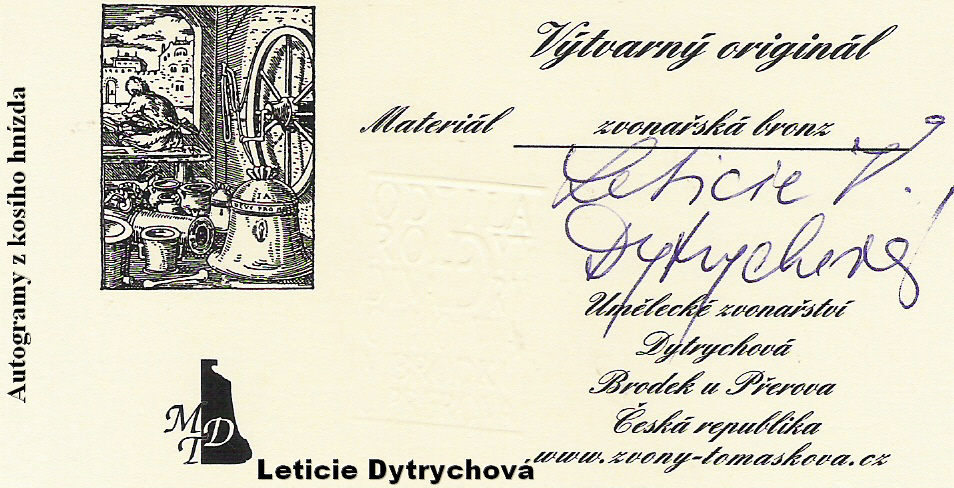 Autogramy z kosího hnízda
Výtvarný originál
Materiál zvonařská bronz
Leticie V.
Dytrychová
Umělecké zvonařství
Dytrychová
Brodek u Přerova
Česká republika
www.zvony-tomaskova.cz
M
D
T
Leticie Dytrychová